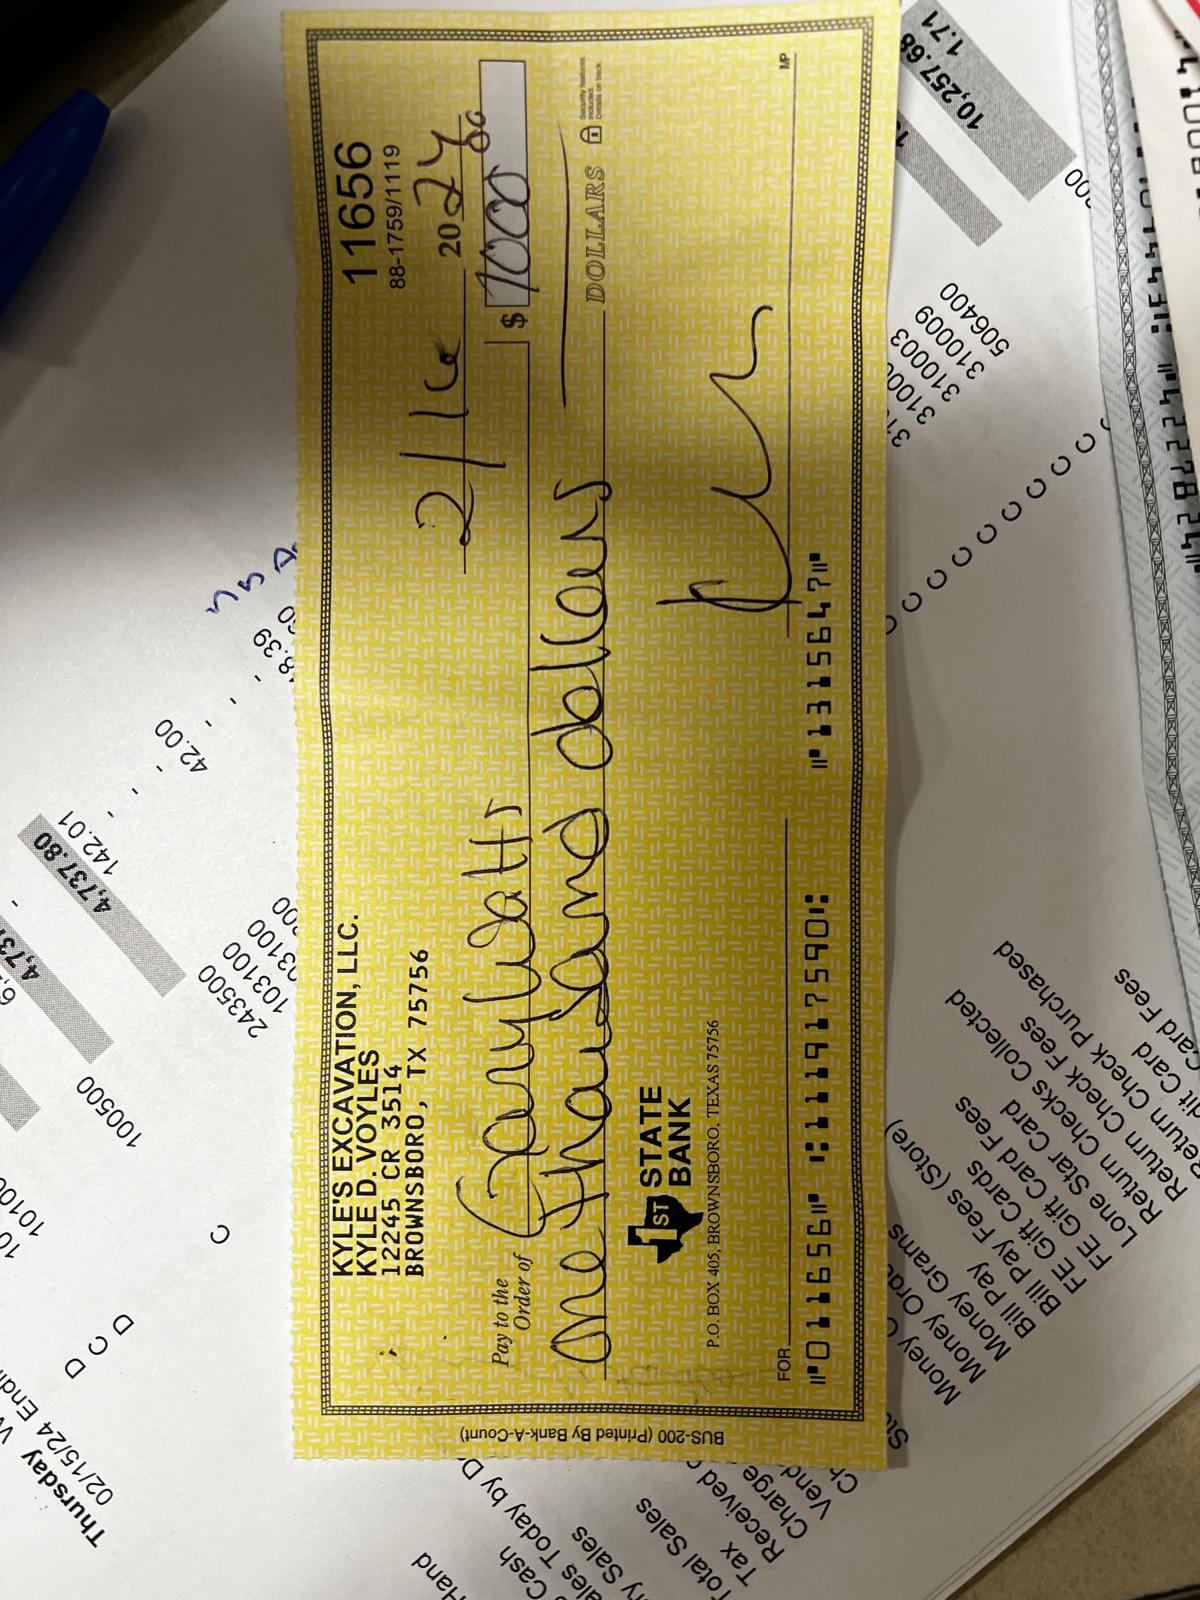 Thursday
02/15/24
D
C
D
C
100500
4,737.80
142.01
-
-
-
42.00
-
-
-
243500
103100
S
S
D
KYLE'S EXCAVATION, LLC.
KYLE D. VOYLES
12245 CR 3514
BROWNSBORO, TX 75756
11656
88-1759/1119
2/16 2024
Pay to the
Order of Gary Watts $ 1000 00
one thousand dollars DOLLARS
Security features
included.
Details on back.
1ST STATE
BANK
P.O. BOX 405, BROWNSBORO, TEXAS 75756
FOR
MP
⑈011656⑈ ⑆111917590⑆ ⑈1315647⑈
BUS-200 (Printed By Bank-A-Count)
Hand
Cash
Sales Today by
Sales
Total Sales
Tax
Received
Charge
Money
Money
Money Grams
Bill Pay
Bill Pay Fees (Store)
FE Gift Cards
FE Gift Card Fees
Lone Star Card
Return Checks Collected
Return Check Fees
Return Check Purchased
Card
Card Fees
C
C
C
C
C
C
C
C
C
310003
310009
506400
10,257.68
1.71